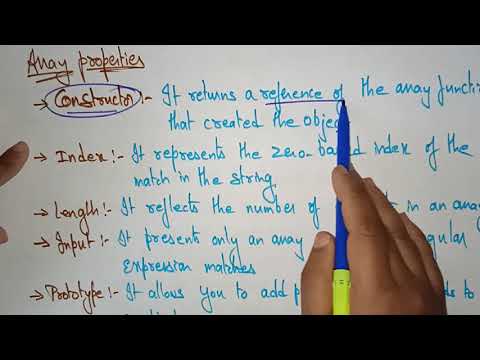 Array properties
→ Constructor :- It returns a reference of the array
that created the
→ Index :- It represents the zero-based index of the
match in the string
→ Length :- It reflects the number of in an
→ Input :- It present only an array
Expression matches
→ Prototype :- It allows you to add to